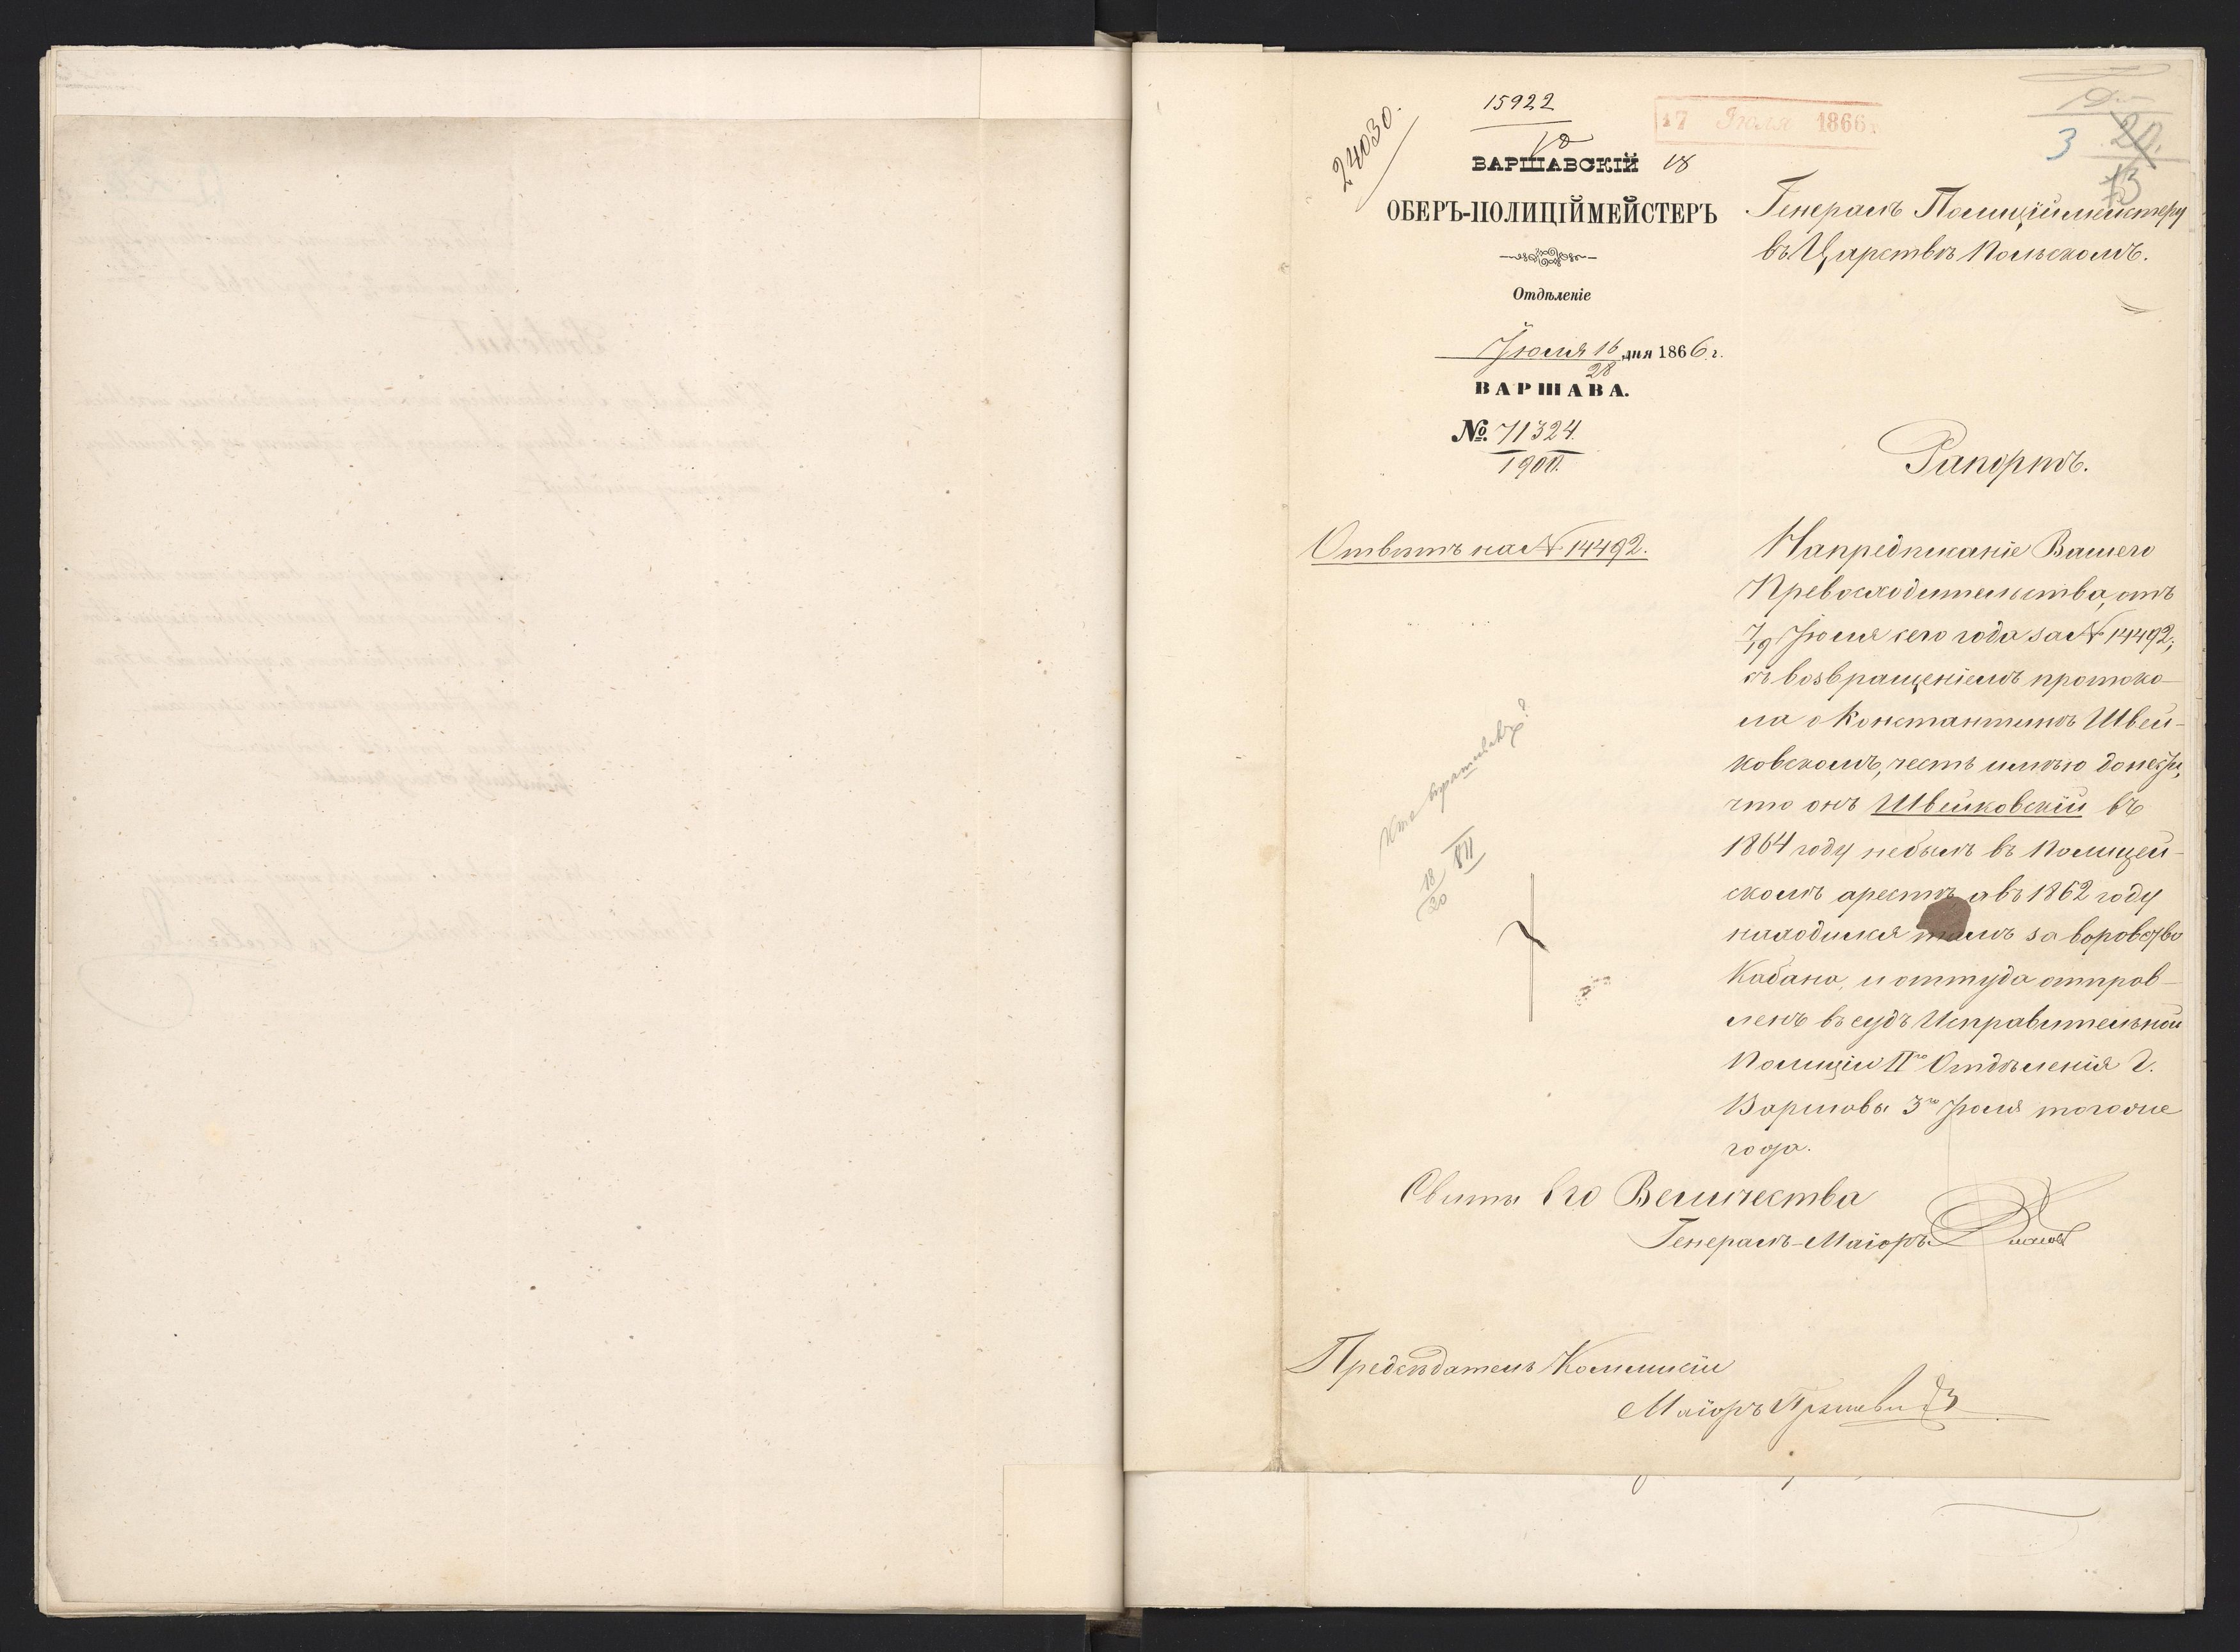 15922
24030.
17 Іюля 1866 г.
3 20.
13
ВАРШАВСКІЙ 18
ОБЕРЪ-ПОЛИЦІЙМЕЙСТЕРЪ
Отдѣленіе
Іюля 16/28 дня 1866 г.
ВАРШАВА.
№ 71324.
1900.
Генералъ Полиціймейстеру
въ Царствѣ Польскомъ.
Рапортъ.
Отвѣтъ на № 14492.
На предписаніе Вашего
Превосходительства, отъ
7/19 Іюля сего года за № 14492,
съ возвращеніемъ протоко-
ла о Константинѣ Швей-
ковскомъ, честь имѣю донести,
что онъ Швейковскій въ
1864 году небылъ въ Полицей-
скомъ арестѣ, а въ 1862 году
находился тамъ за воровство
Кабана, и оттуда отправ-
ленъ въ судъ Исправительной
Полиціи II го Отдѣленія г.
Варшавы 3 го Іюля тогоже
года.
18/30 VII
Свиты Его Величества
Генералъ-Маіоръ
Предсѣдатель Коммисіи
Маіоръ